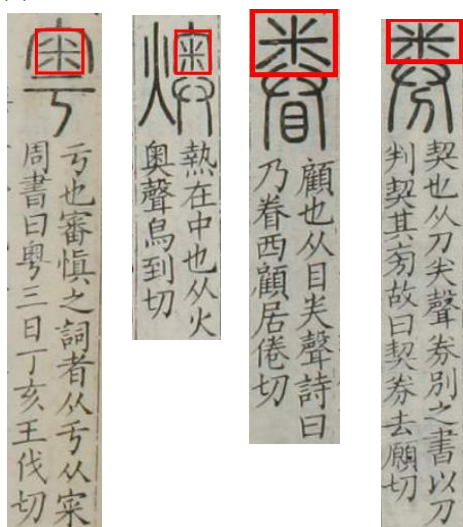 粵
亏也審愼之詞者从亏从宷
周書曰粵三日丁亥王伐切
燠
熱在中也从火
奥聲烏到切
眷
顧也从目𢍏聲詩曰
乃眷西顧居倦切
券
契也从刀𢍏聲券別之書以刀
判契其㫄故曰契券去願切